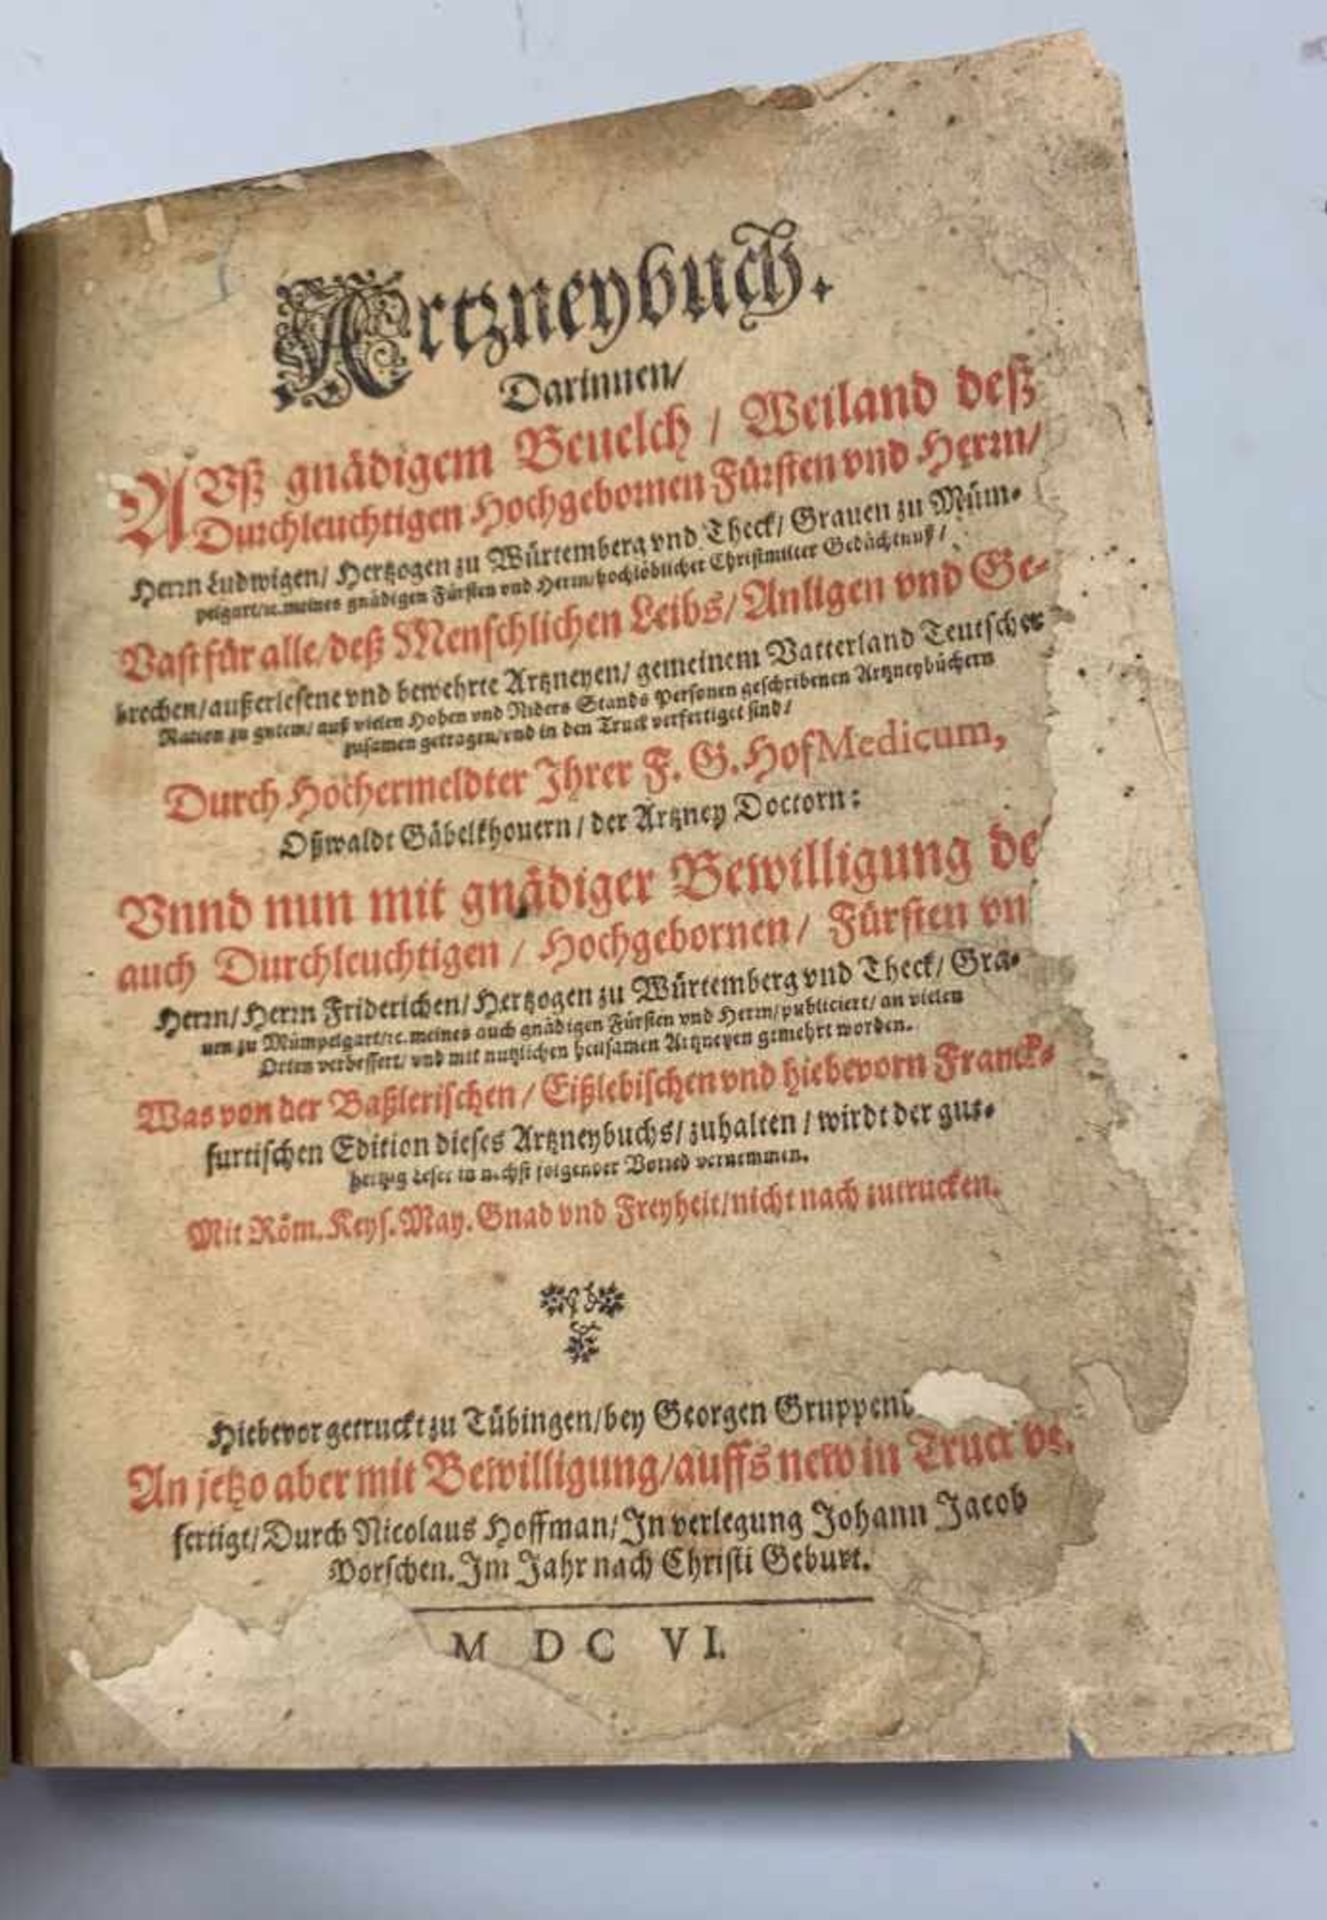 Artzneybuch.
Darinnen/
AVß gnädigem Beuelch / Weiland deß
Durchleuchtigen Hochgebornen Fürsten vnd Herrn/
Herrn Ludwigen/ Hertzogen zu Würtemberg vnd Theck/ Grauen zu Müm-
pelgart/ꝛc. meines gnädigen Fürsten vnd Herrn/ hochlöblicher Christmilter Gedächtnuß/
Vast für alle/ deß Menschlichen Leibs/ Anligen vnd Ge-
brechen/ außerlesene vnd bewehrte Artzneyen/ gemeinem Vatterland Teutscher
Nation zu gutem/ auß vielen Hohen vnd Niders Stands Personen geschribenen Artzneybüchern
zusamen getragen/ vnd in den Truck verfertiget sind/
Durch Hochermeldter Ihrer F. G. HofMedicum,
Oßwaldt Gäbelkhouern/ der Artzney Doctorn:
Vnnd nun mit gnädiger Bewilligung de
auch Durchleuchtigen / Hochgebornen/ Fürsten vn
Herrn/ Herrn Friderichen/ Hertzogen zu Würtemberg vnd Theck/ Gra-
uen zu Mümpelgart/ꝛc. meines auch gnädigen Fürsten vnd Herrn/ publiciert/ an vielen
Orten verbessert/ vnd mit nutzlichen heilsamen Artzneyen gemehrt worden.
Was von der Baßlerischen / Eißlebischen vnd hiebevorn Franck-
furtischen Edition dieses Artzneybuchs/ zuhalten / wirdt der gut-
hertzig Leser in nechst folgender Vorred vernemmen.
Mit Röm. Keys. May. Gnad vnd Freyheit/ nicht nach zutrucken.
Hiebevor getruckt zu Tübingen/ bey Georgen Gruppen
An jetzo aber mit Bewilligung/ auffs new in Truck ve.
fertigt/ Durch Nicolaus Hoffman/ In verlegung Johann Jacob
Porschen. Im Jahr nach Christi Geburt.
M DC VI.